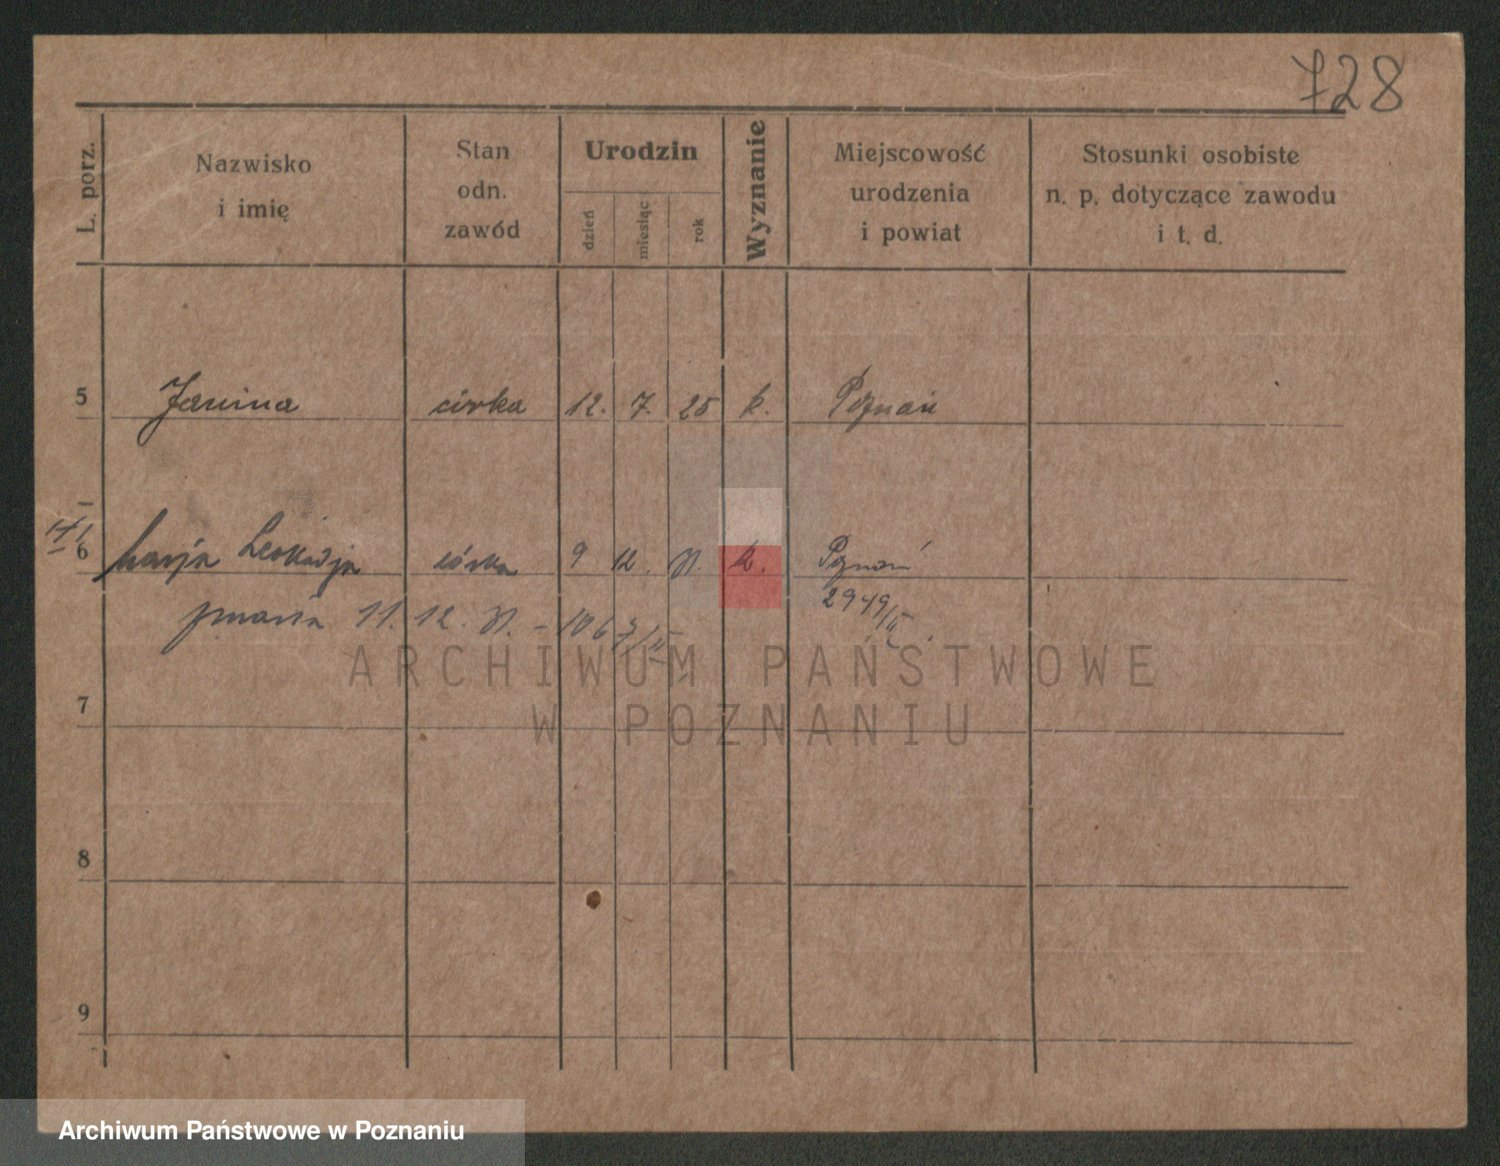 728
L. porz.
Nazwisko i imię
Stan odn. zawód
Urodzin
dzień
miesiąc
rok
Wyznanie
Miejscowość urodzenia i powiat
Stosunki osobiste n. p. dotyczące zawodu i t. d.
5 Janina córka 12. 7. 25 k. Poznań
6 Marja Leokadja córka 9 12. k. Poznań
zmarła 11. 12. 2949/II
ARCHIWUM PAŃSTWOWE
W POZNANIU
7
8
9
Archiwum Państwowe w Poznaniu